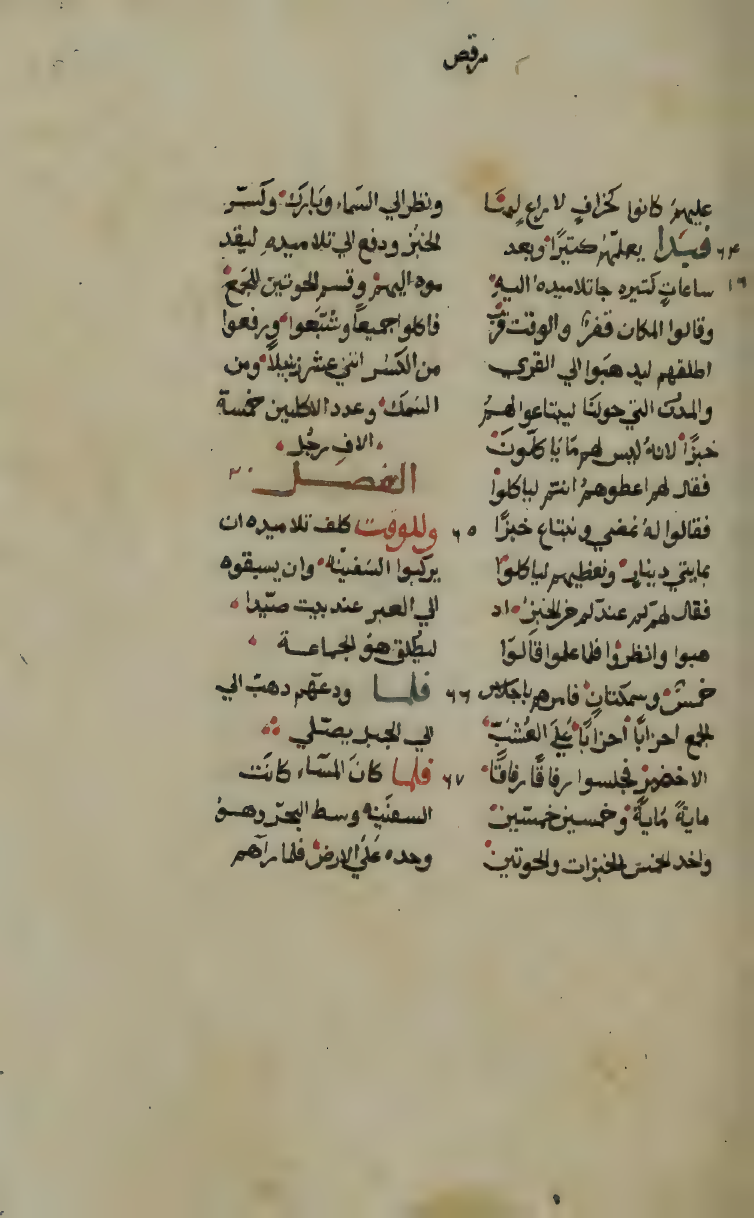 مرقص
عليهم كانوا كخراف لا راع لها
٦٤ فبدا يعلمهم كتيرًا وبعد
١٩ ساعات كتيره جا تلاميده اليه
وقالوا المكان قفر والوقت قرب
اطلقهم ليدهبوا الي القري
والمدن التي حولنا ليبتاعوا لهم
خبزًا لانه ليس لهم ما ياكلون
فقال لهم اعطوهم انتم لياكلوا
فقالوا له نمضي ونبتاع خبزًا
بمايتي دينار ونعطيهم لياكلوا
فقال لهم كم عندكم من الخبز اد
هبوا وانظروا فلما علموا قالوا
خمس وسمكتان فامرهم باجلاس
الجمع احزابًا احزابًا علي العشب
الاخضر فجلسوا رفاقًا رفاقًا
مايةً مايةً وخمسين خمسين
واخد الخمس الخبزات والحوتين
ونظر الي السماء وبارك وكسر
الخبز ودفع الي تلاميده ليقد
موه اليهم وقسم الحوتين للجمع
فاكلوا جميعًا وشبعوا ورفعوا
من الكسر اثني عشر زنبيلًا ومن
السمك وعدد الاكلين خمسة
الاف رجل
الفصل ٢٠
٦٥ وللوقت كلف تلاميده ان
يركبوا السفينه وان يسبقوه
الي العبر عند بيت صيدا
ليطلق هو الجماعة
٦٦ فلما ودعهم دهب الي
الي الجبل يصلي
٦٧ فلما كان المساء كانت
السفينه وسط البحر وهو
وحده علي الارض فلما رآهم